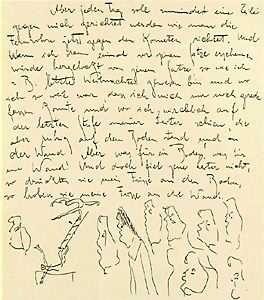 Aber jeden Tag soll zumindest eine Zeile
gegen mich gerichtet werden wie man die
Fernrohre jetzt gegen den Kometen richtet. Und
wenn ich dann einmal vor jenem Satze erscheinen
würde hergelockt von jenem Satze so wie ich
z. B. letzte Weihnachten gewesen bin und wo
ich so weit war dass ich mich nur noch gerade
fassen konnte und wo ich wirklich auf
der letzten Stufe meiner Leiter schien, die
aber ruhig auf dem Boden stand und an
der Wand. Aber was für ein Boden, was für
eine Wand! Und doch fiel jene Leiter nicht,
so drückten sie meine Füsse an den Boden,
so hoben sie meine Füsse an die Wand.